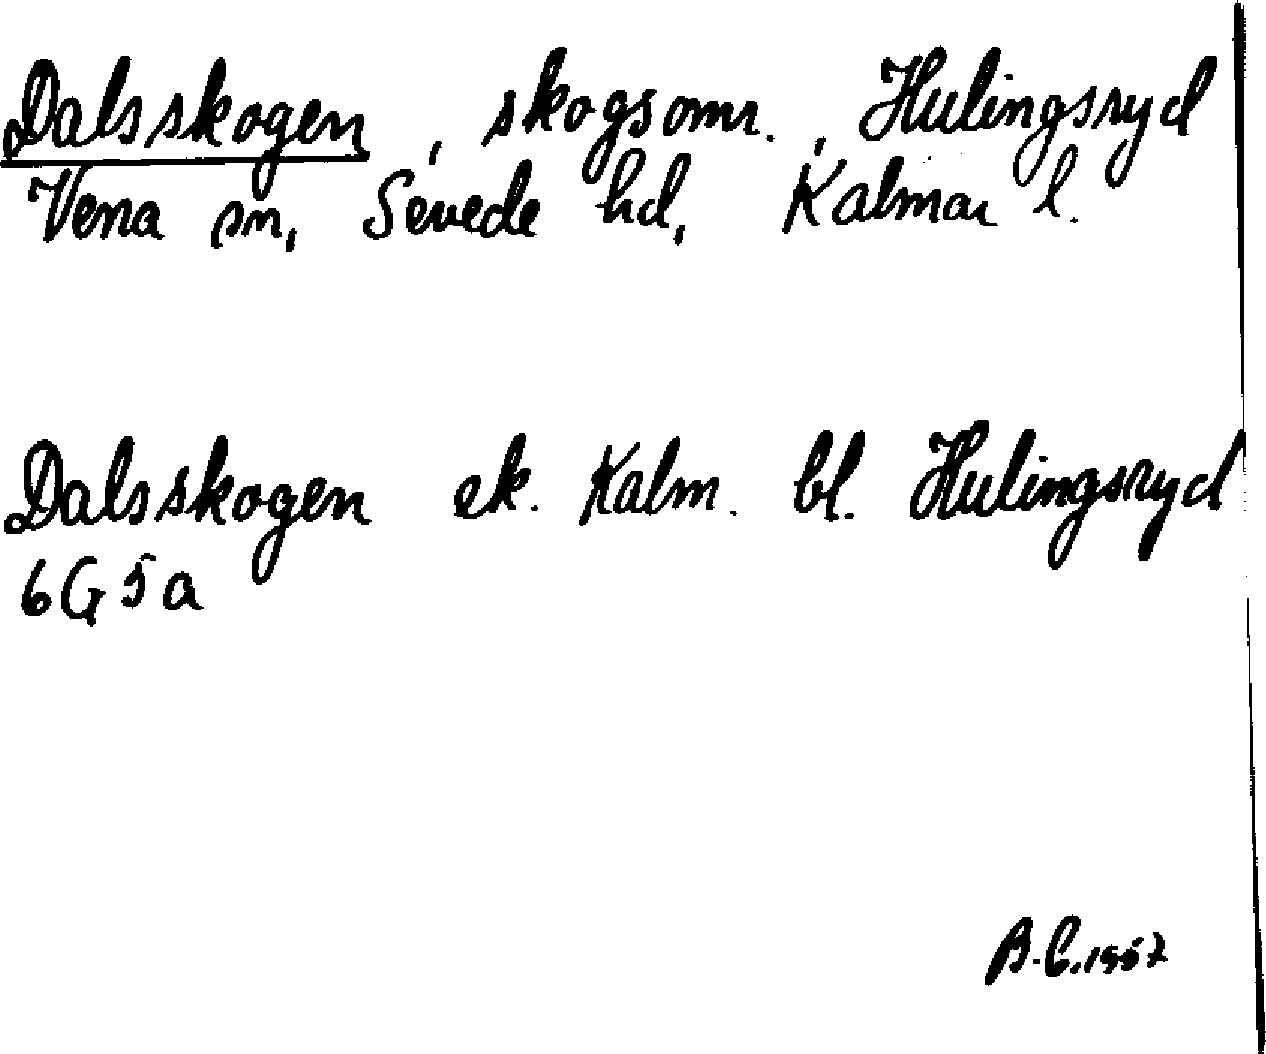 Dalsskogen, skogsomr., Hulingsryd
Vena sn, Sevede hd, Kalmar l.
Dalsskogen ek. Kalm. bl. Hulingsryd
6G 5a